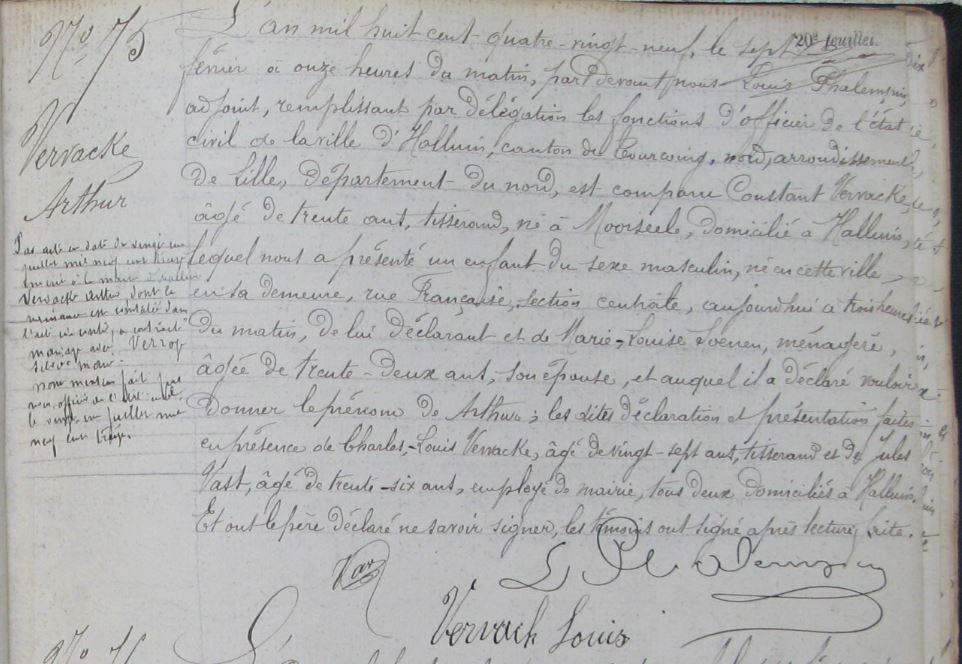 N° 75
Vervacke
Arthur
L'an mil huit cent quatre-vingt-neuf, le sept
20e feuillet.
février à onze heures du matin, par devant nous Louis Phalempin
adjoint, remplissant par délégation les fonctions d'officier de l'état
civil de la ville d'Halluin, canton de Tourcoing, nord, arrondissement
de Lille, département du nord, est comparu Constant Vervacke,
âgé de trente ans, tisserand, né à Moorseele, domicilié à Halluin,
lequel nous a présenté un enfant du sexe masculin, né en cette ville,
en sa demeure, rue Française, section centrale, aujourd'hui à trois heures
du matin, de lui déclarant et de Marie-Louise Soenen, ménagère,
âgée de trente-deux ans, son épouse, et auquel il a déclaré vouloir
donner le prénom de Arthur; les dites déclaration et présentation faites
en présence de Charles-Louis Vervacke, âgé de vingt-sept ans, tisserand et de Jules
Vast, âgé de trente-six ans, employé de mairie, tous deux domiciliés à Halluin.
Et ont le père déclaré ne savoir signer, les témoins ont signé après lecture faite.
Par acte en date du vingt un
juillet mil neuf cent treize
Vervacke Arthur dont la
naissance est constatée dans
l'acte ci-contre, a contracté
mariage avec Verroy
neuf cent treize.
L Phalempin
Vast
Vervack Louis